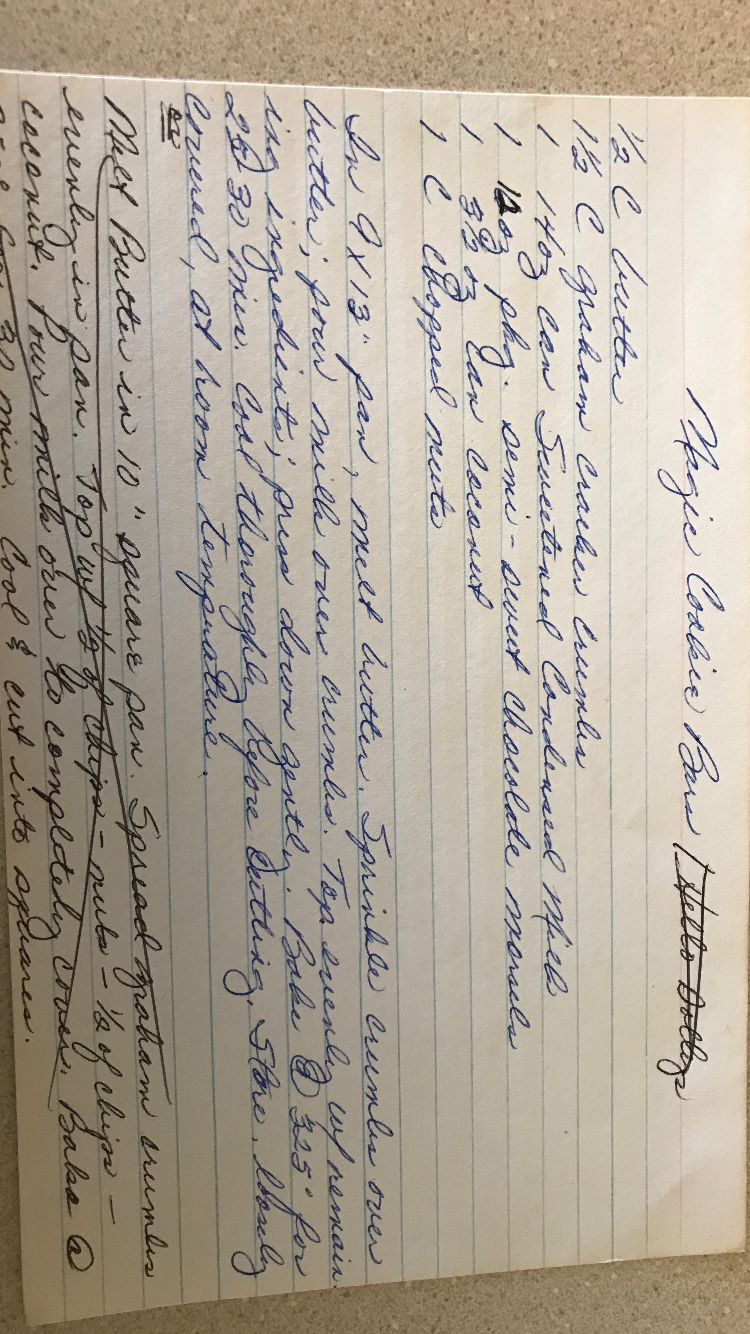 Magic Cookie Bars / Hello Dollys
1/2 C butter
1 1/2 C graham cracker crumbs
1 14oz can Sweetened Condensed Milk
1 12oz pkg. semi-sweet chocolate morsels
1 3 1/2 oz can coconut
1 C chopped nuts
In 9 x 13" pan, melt butter. Sprinkle crumbs over
butter; pour milk over crumbs. Top evenly w/ remain
ing ingredients; press down gently. Bake @ 325° for
30 min. Cool thoroughly before cutting. Store, loosely
covered, at room temperature.
or
Melt Butter in 10" square pan. Spread graham crumbs
evenly in pan. Top w/ 1/2 of chips - nuts - 1/2 of chips -
coconut. Pour milk over to completely cover. Bake @
30 min. Cool & cut into squares.